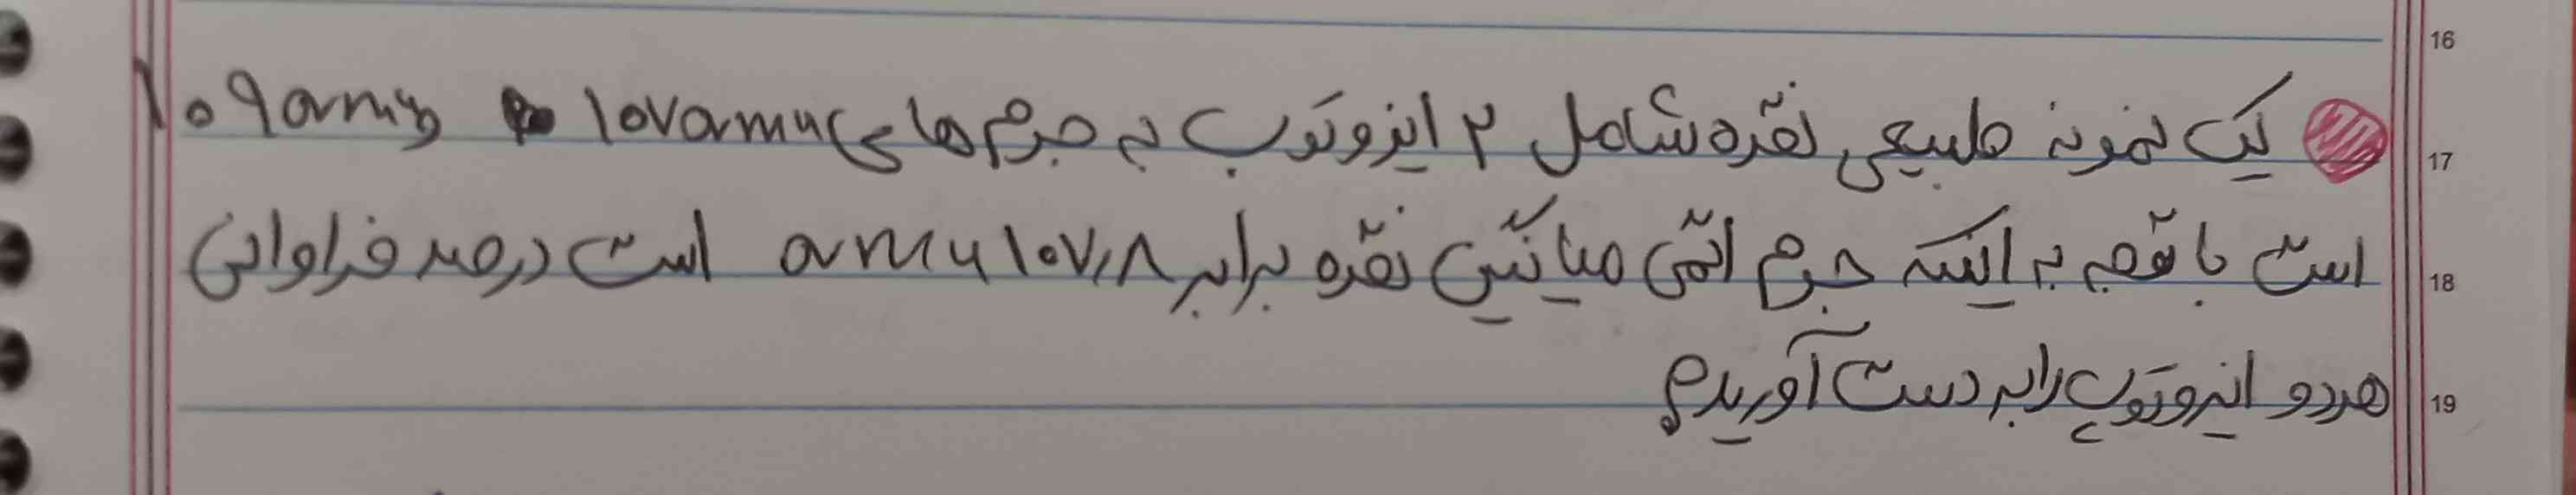 یک نمونه طبیعی نقره شامل ۲ ایزوتوپ به جرم های ۱۰۷amu و ۱۰۹amu
است با توجه به اینکه جرم اتمی میانگین نقره برابر ۱۰۷,۸ amu است درصد فراوانی
هردو ایزوتوپ را به دست آورید؟
16
17
18
19